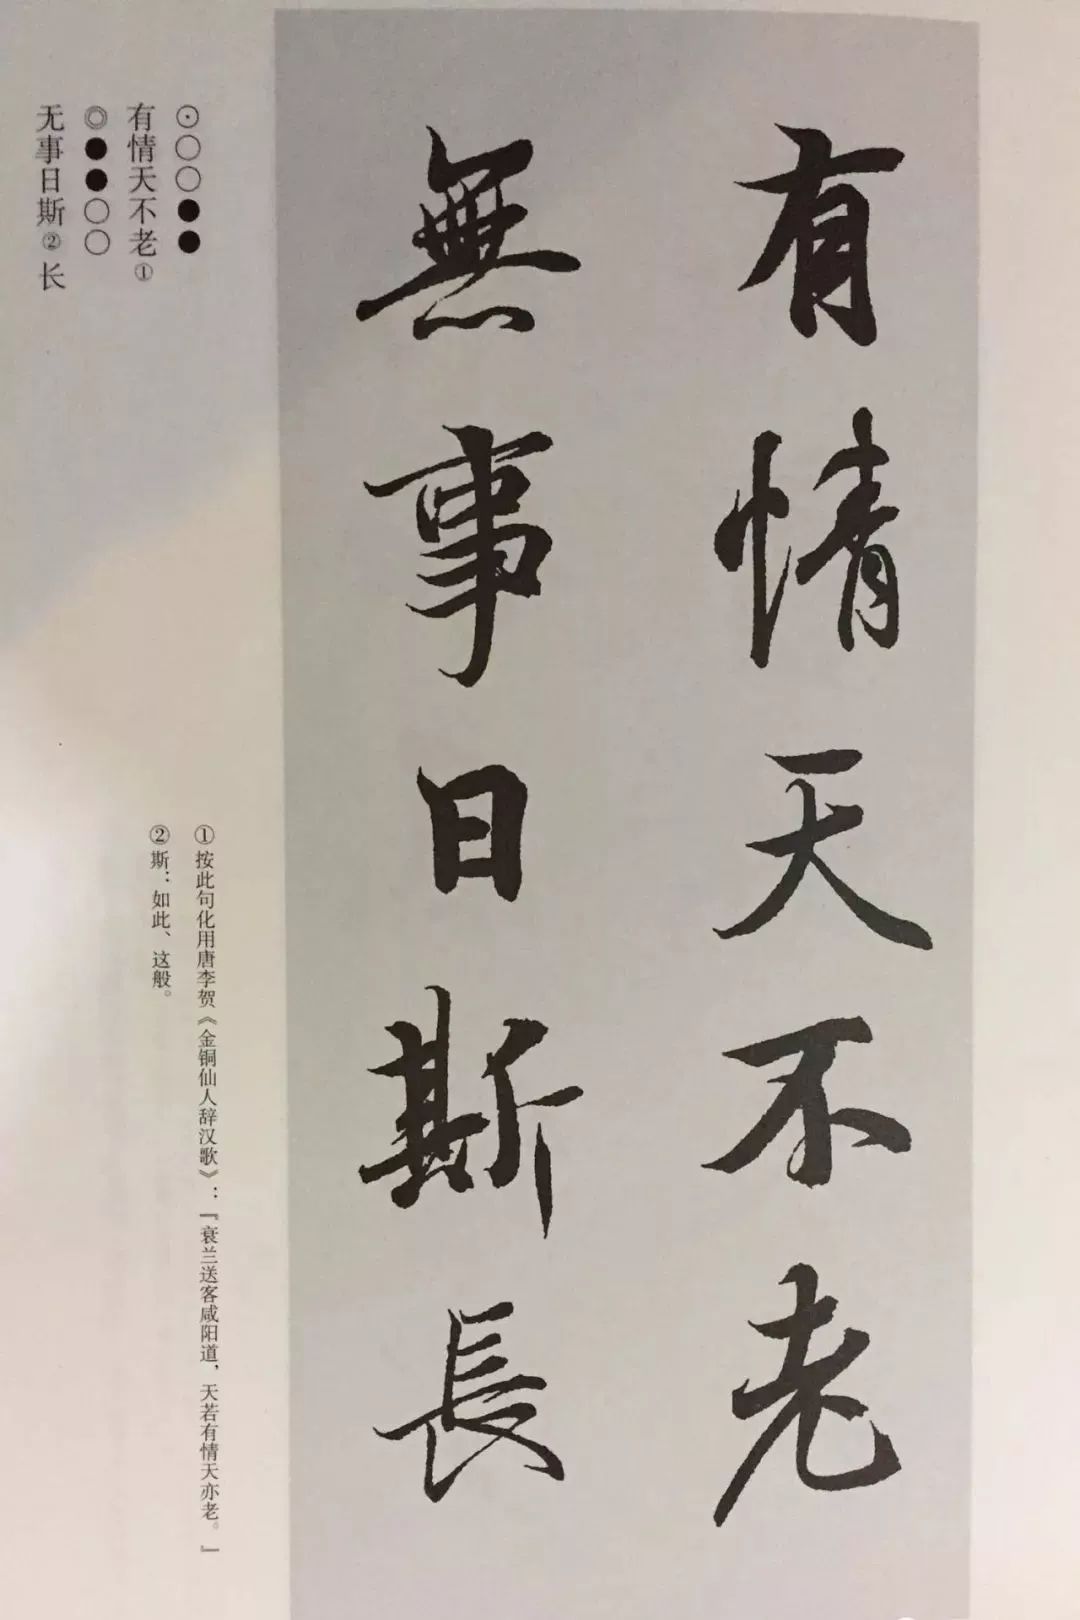 有情天不老
無事日斯長
⊙○○●●
有情天不老①
◎●●○○
无事日斯②长
①按此句化用唐李贺《金铜仙人辞汉歌》：「衰兰送客咸阳道，天若有情天亦老。」
②斯：如此、这般。